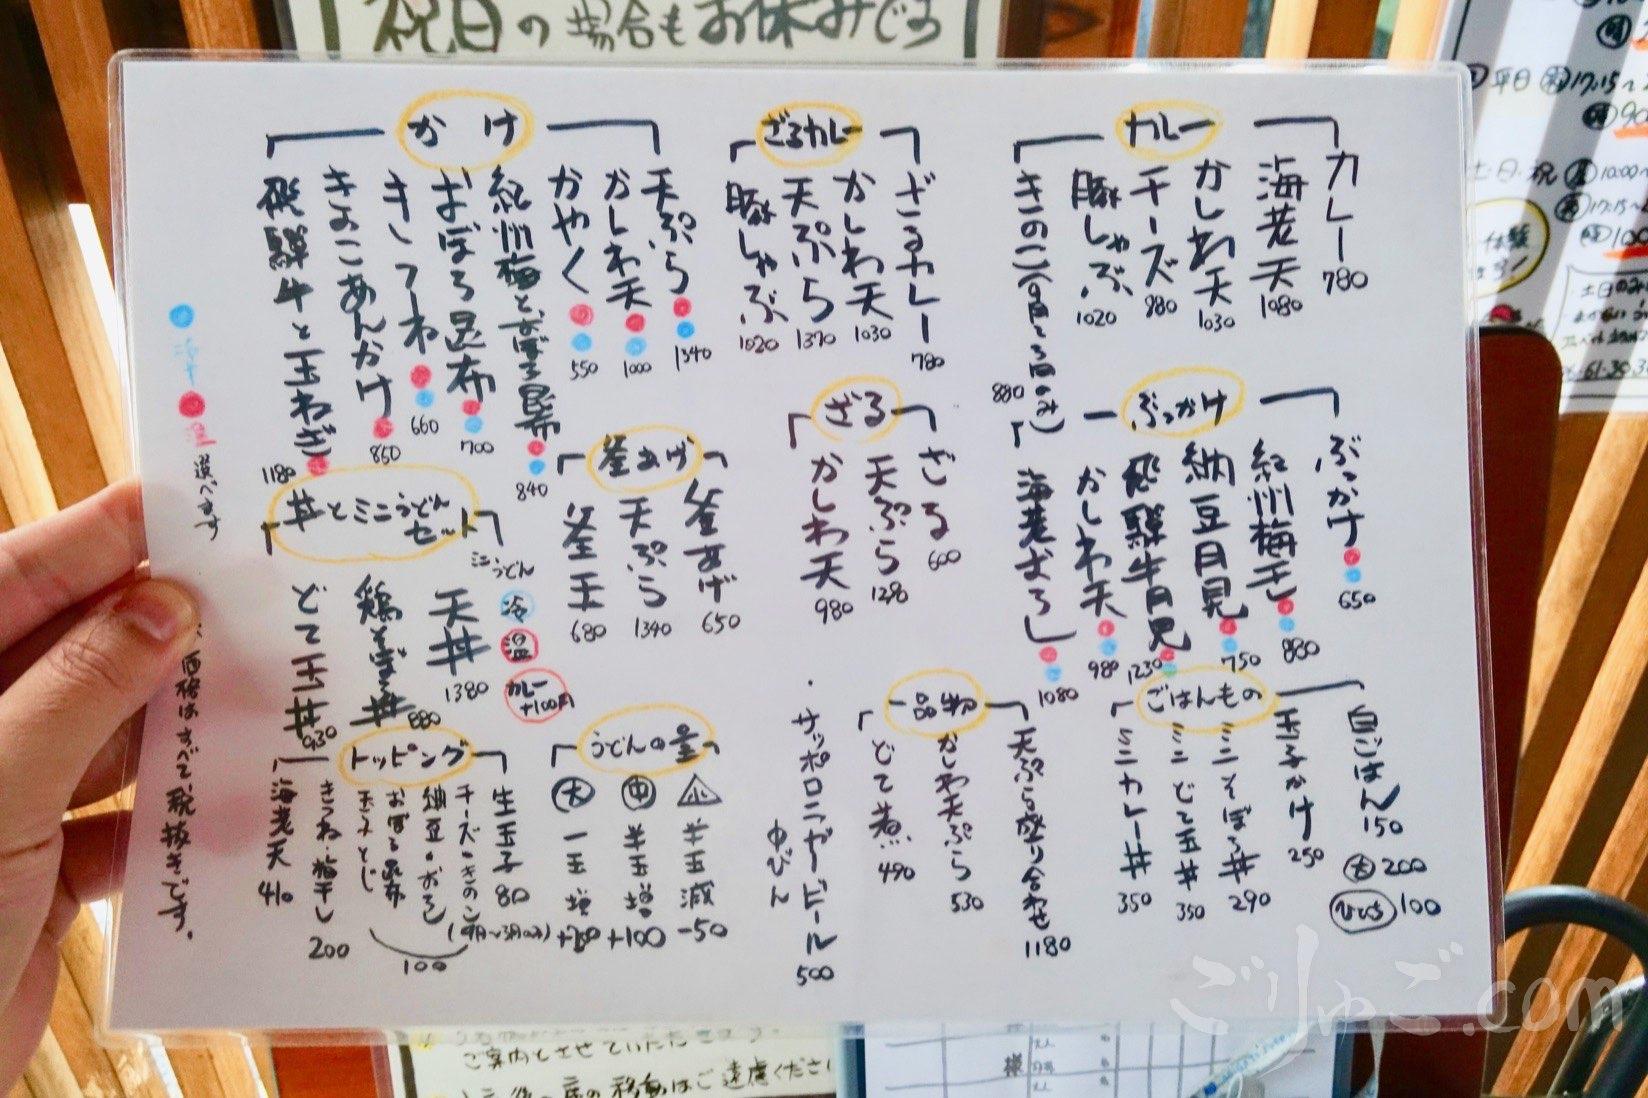 祝日の場合もお休みです
カレー
カレー 780
海老天 1080
かしわ天 1030
チーズ 880
豚しゃぶ 1020
きのこ(9月〜3月のみ) 880
ざるカレー
ざるカレー 780
かしわ天 1030
天ぷら 1370
豚しゃぶ 1020
かけ
天ぷら 1340
かしわ天 1000
かやく 550
紀州梅とおぼろ昆布 840
おぼろ昆布 700
きつね 660
きのこあんかけ 850
飛騨牛と玉ねぎ 1180
ぶっかけ
ぶっかけ 650
紀州梅干し 880
納豆月見 750
飛騨牛月見 1230
かしわ天 980
海老おろし 1080
ざる
ざる 600
天ぷら 1290
かしわ天 980
釜あげ
釜あげ 650
天ぷら 1340
釜玉 680
丼とミニうどんセット
ミニうどん
冷
温
カレー +100円
天丼 1380
鶏そぼろ丼 880
どて玉丼 930
ごはんもの
白ごはん 150
大 200
ひとくち 100
玉子かけ 250
ミニそぼろ丼 290
ミニどて玉丼 350
ミニカレー丼 350
一品物
天ぷら盛り合わせ 1180
かしわ天ぷら 530
どて煮 490
サッポロラガービール 中びん 500
うどんの量
小 半玉減 -50
中 半玉増 +100
大 一玉増 +200
トッピング
生玉子 80
チーズ・きのこ(9月〜3月のみ)
納豆・おろし
おぼろ昆布
玉子とじ
100
きつね・梅干し 200
海老天 410
冷 温 選べます
価格はすべて税抜きです。
平日
17:15〜
土・日・祝
10:00〜
17:15〜
ご案内させていただきます。
席の移動はご遠慮ください
様
ごりゅご.com